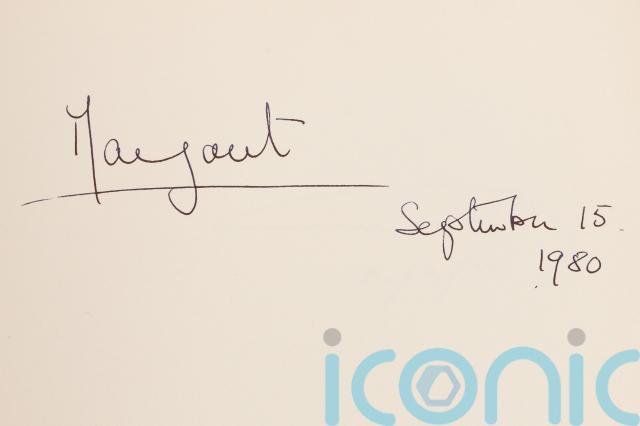 Margaret
September 15.
1980
iconic